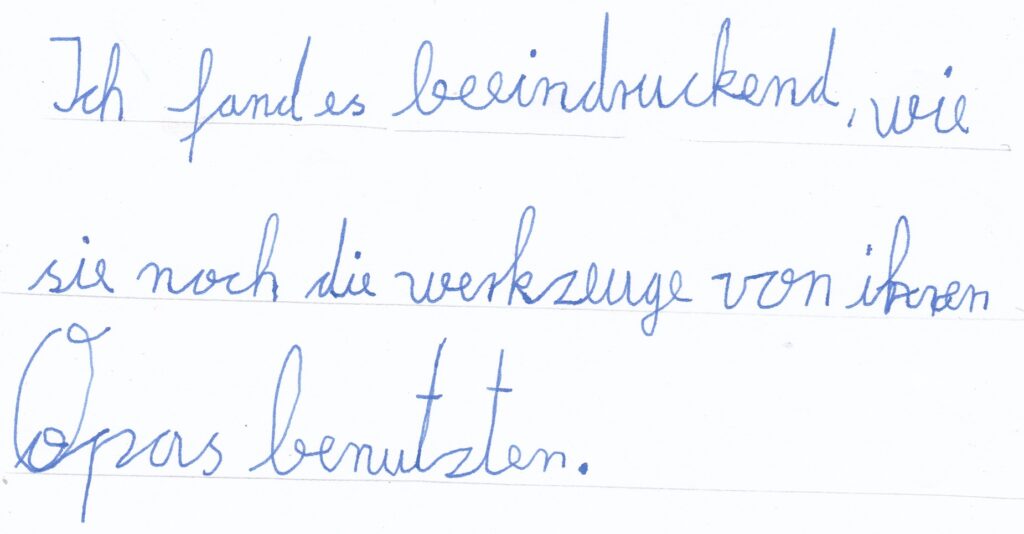 Ich fand es beeindruckend, wie
sie noch die werkzeuge von ihren
Opas benutzten.